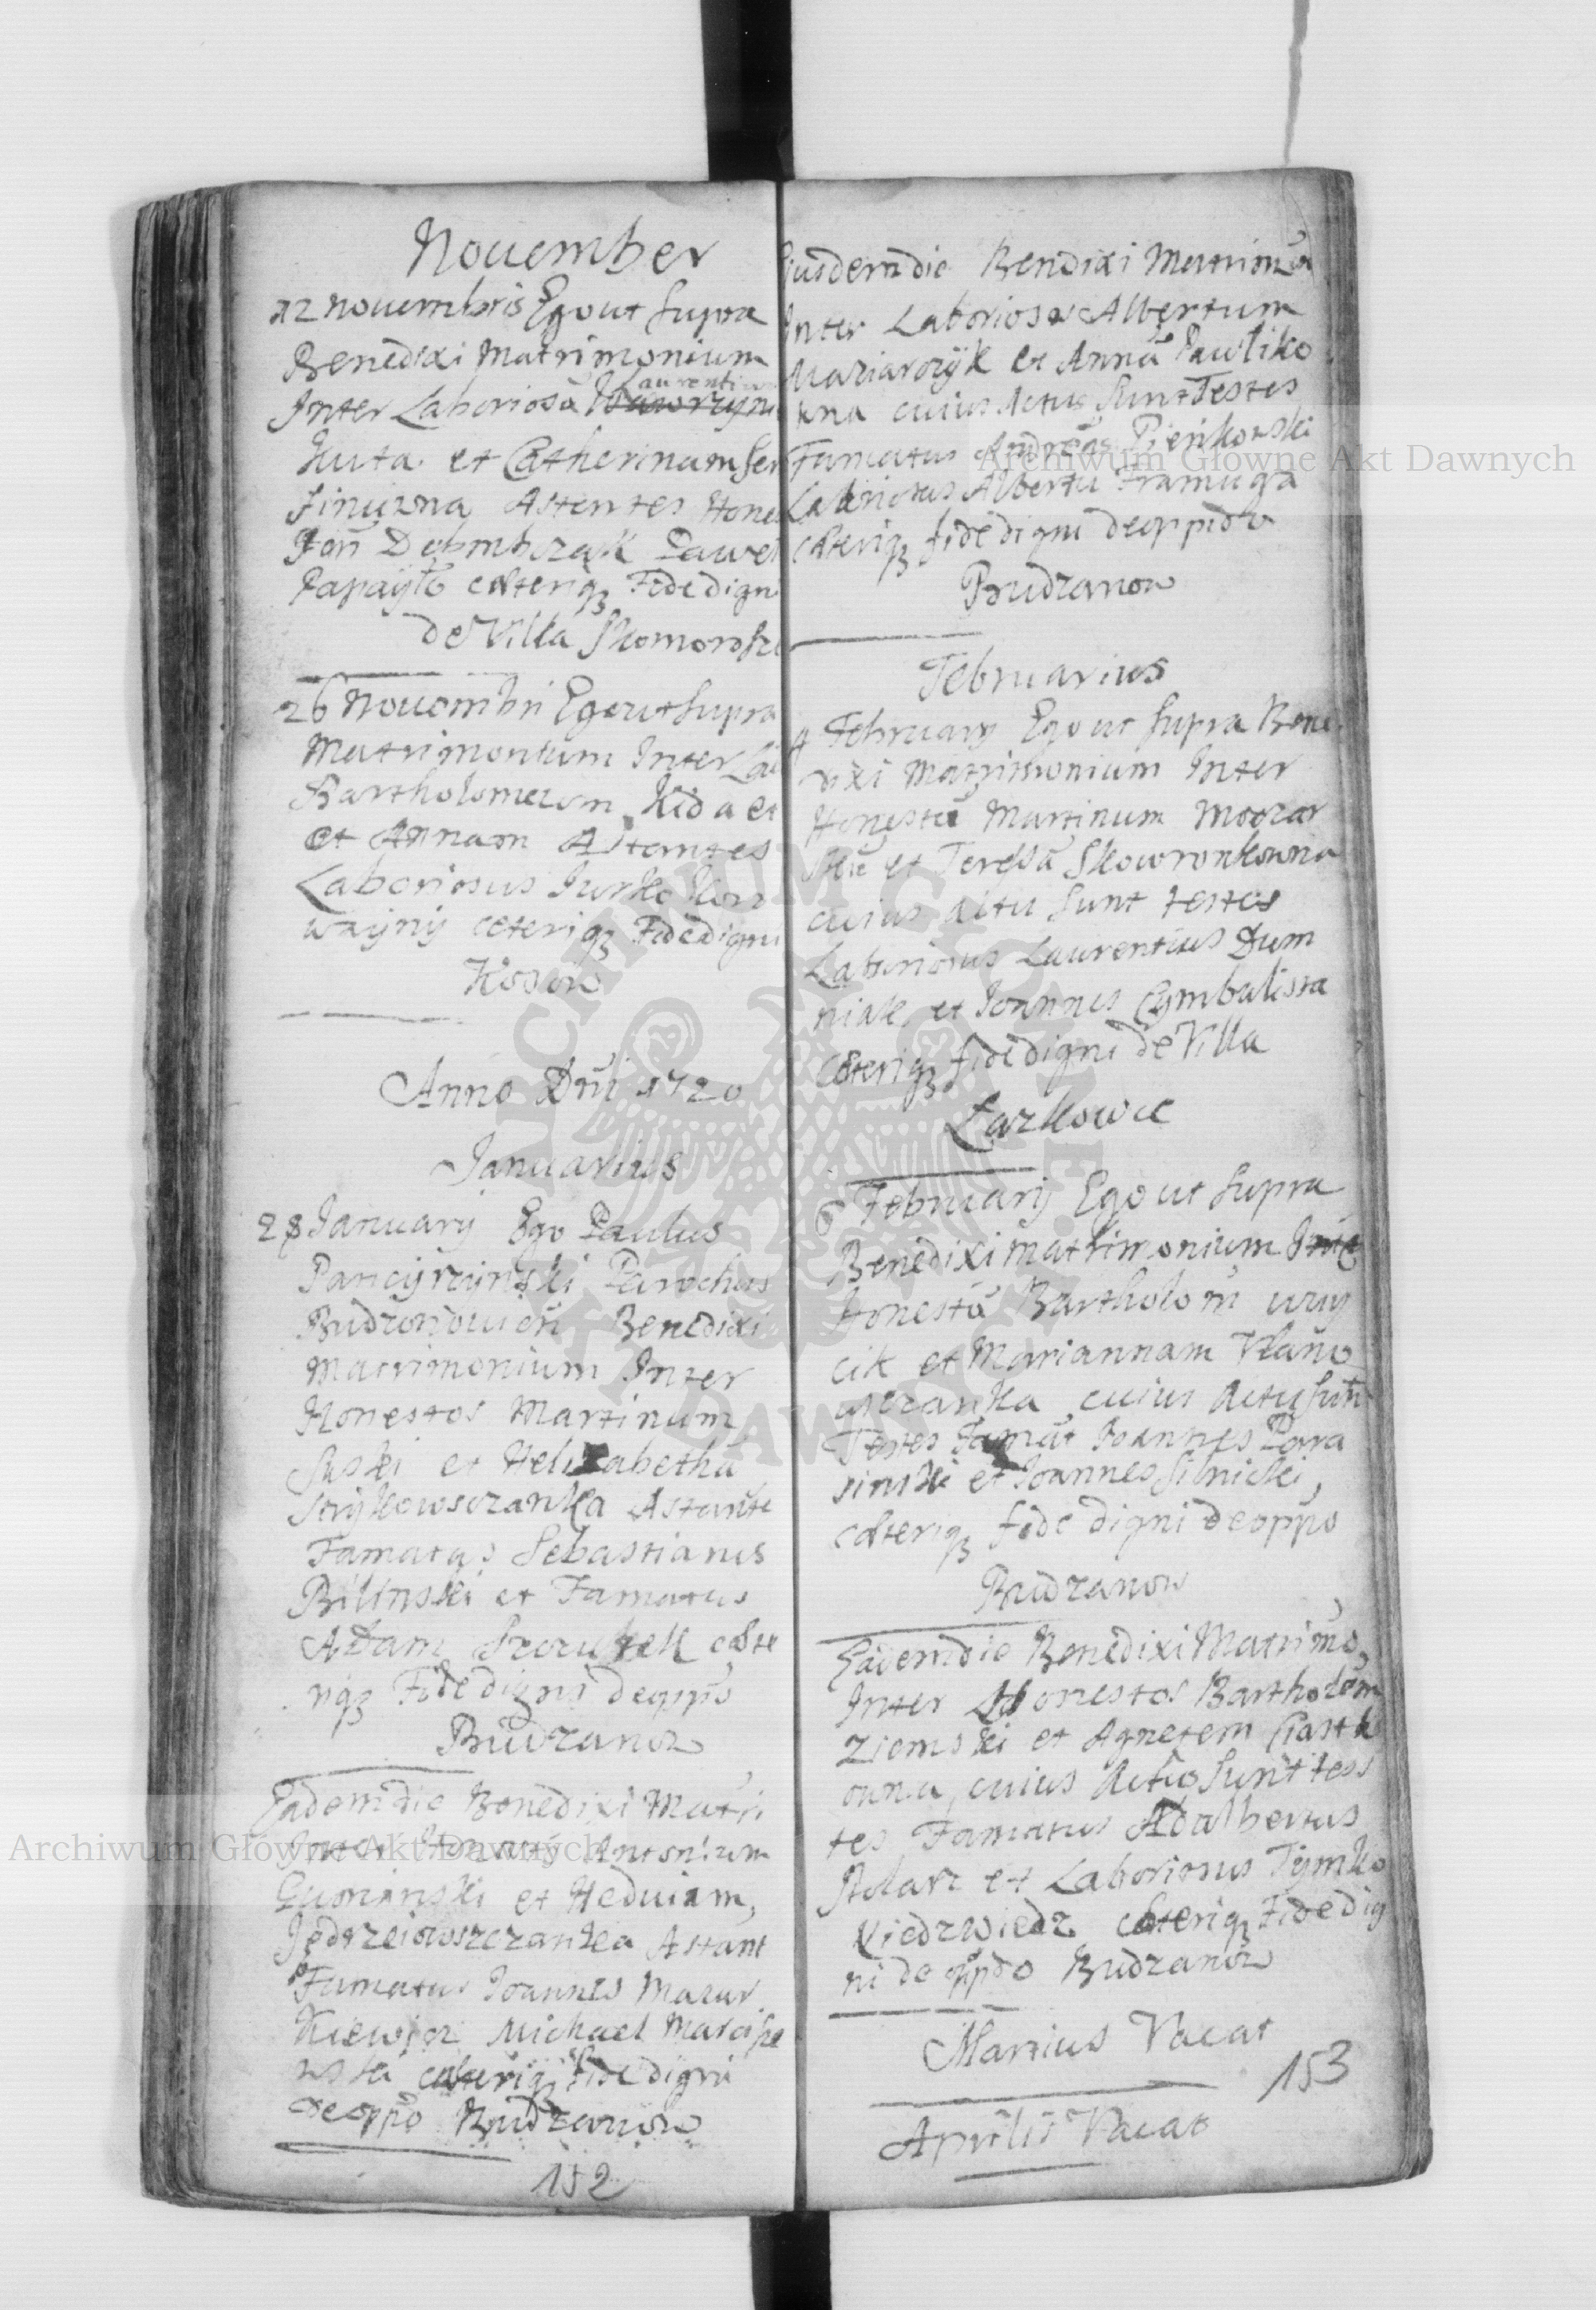 November
12 novembris Ego ut supra
Benedixi Matrimonium
Inter Laboriosā Laurentiu
Huta et Catherinam Ser
Astentes Hones
Jan Pawel
ceteriq3 Fide digni
de Villa Skomorosze
26 Novembri Ego ut supra
Matrimonium Inter Lab
Bartholomeum Kida et
et Annam Astantes
Laboriosus Jurko
ceteriq3 Fide digni
Kosow
Anno Dni 1720
Januarius
28 January Ego Paulus
Pancyrzynski Parochus
Benedixi
Matrimonium Inter
Honestos Martinum
Suski et Helizabethā
Strykowsczanka Astante
Famatus Sebastianus
Bilinski et Famatus
Adam cæte
riq3 Fide digni de oppō
Budzanow
Eademdie Benedixi Matri
Inter Antonium
et Heduiam
Jedrzeiowszczanka Astant
Famatus Joannes Mazur
Kiewicz Michael
cæteriq3 Fide digni
de oppō Budzanow
152
Ejusdemdie Bendixi Matrimon
Inter Laborios Albertum
Maziarczyk et Annā Pawliko
wna cuius Actus Sunt Testes
Famatus Andreas Pienkowski
Albertu Framuga
cæteriq3 fide digni de oppido
Budzanow
Februarius
4 February Ego ut supra Bene
dixi Matrimonium Inter
Honestū Martinum Moczar
skie et Teresā Skowronkowna
cuius actu sunt testes
Laboriosus Laurentius Dum
niak et Joannes Cymbalista
cæteriq3 fide digni de Villa
Laskowce
6 Februarij Ego ut supra
Benedixi matrimonium Inte
Honestū Bartholom
cik et Mariannam Vlano
wszanka cuius Actu sun
Testes Famat Joannes Para
sinski et Joannes Silnicki,
cæteriq3 fide digni de oppo
Budzanow
Eademdie Benedixi Matrimo
Inter Honestos Bartholom
Ziemski et Agnetem Piastk
owna, cuius Actus sunt tess
tes Famatus Adalbertus
Stolarz et Laboriosus Tymko
Niedzwiedz cæteriq3 Fide dig
ni de oppdo Budzanow
Martius Vacat
153
Aprilis Vacat
Archiwum Główne Akt Dawnych
Archiwum Główne Akt Dawnych
ARCHIWUM GŁÓWNE AKT DAWNYCH